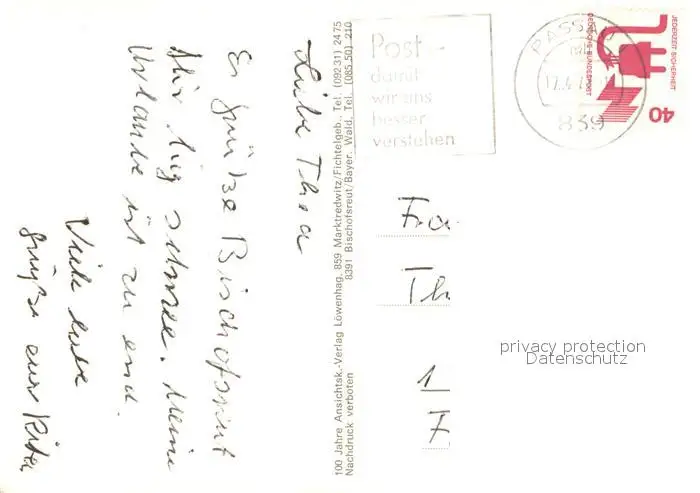 Liebe Thea
Es grüße Bischofsreut
Hir lig schnee. Meine
Urlaube ist zu end.
Viele liebe
grüße eure Rita
100 Jahre Ansichtsk.-Verlag Löwenhag, 859 Marktredwitz/Fichtelgeb., Tel. (092 31) 24 75
8391 Bischofsreut/Bayer. Wald, Tel. (085 50) 210
Nachdruck verboten
Post -
damit
wir uns
besser
verstehen
PASSAU
839
JEDERZEIT SICHERHEIT
DEUTSCHE BUNDESPOST
40
Fra
Th
1
F
privacy protection
Datenschutz